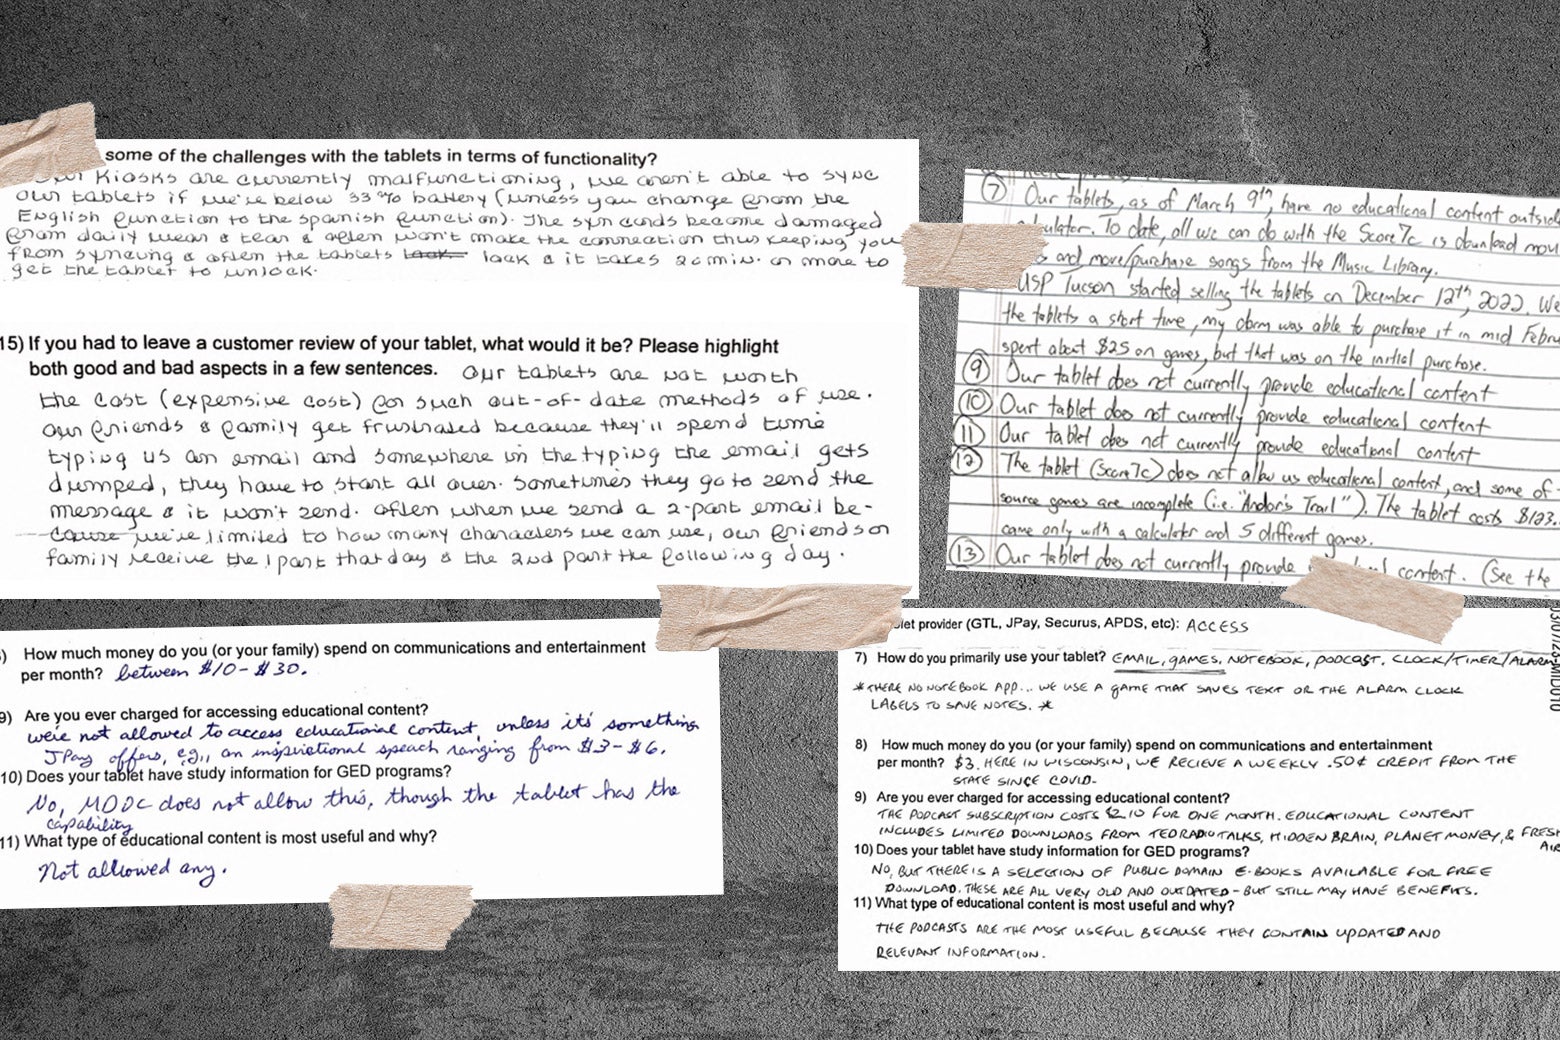 some of the challenges with the tablets in terms of functionality?
Kiosks are currently malfunctioning, we aren't able to sync
our tablets if we're below 33% battery (unless you change from the
English function to the spanish function). The syn cords become damaged
from daily wear & tear & often won't make the connection thus keeping you
from syncing & often the tablets lock & it takes 20 min. or more to
get the tablet to unlock.
15) If you had to leave a customer review of your tablet, what would it be? Please highlight
both good and bad aspects in a few sentences. Our tablets are not worth
the cost (expensive cost) for such out-of-date methods of use.
Our friends & family get frustrated because they'll spend time
typing us an email and somewhere in the typing the email gets
dumped, they have to start all over. Sometimes they go to send the
message & it won't send. Often when we send a 2-part email be-
cause we're limited to how many characters we can use, our friends or
family receive the 1 part that day & the 2nd part the following day.
7 Our tablets, as of March 9th, have no educational content outside
To date, all we can do with the Score7c is download
and move/purchase songs from the Music Library.
USP Tucson started selling the tablets on December 12th, 2022. We
the tablets a short time, my dorm was able to purchase it in mid
spent about $25 on games, but that was on the initial purchase.
9 Our tablet does not currently provide educational content
10 Our tablet does not currently provide educational content
11 Our tablet does not currently provide educational content
12 The tablet (Score7c) does not allow us educational content, and some of
source games are incomplete (i.e. "Andor's Trail"). The tablet costs $123.
came only with a calculator and 5 different games.
13 Our tablet does not currently provide content. (See the
) How much money do you (or your family) spend on communications and entertainment
per month? between $10-$30.
9) Are you ever charged for accessing educational content?
we're not allowed to access educational content, unless it's something
JPay offers, e.g., an inspirational speach ranging from $3-$6.
10) Does your tablet have study information for GED programs?
No, MDOC does not allow this, though the tablet has the
capability
11) What type of educational content is most useful and why?
Not allowed any.
provider (GTL, JPay, Securus, APDS, etc): ACCESS
7) How do you primarily use your tablet? EMAIL, GAMES, NOTEBOOK, PODCAST, CLOCK/TIMER/ALARM
*THERE NO NOTEBOOK APP... WE USE A GAME THAT SAVES TEXT OR THE ALARM CLOCK
LABELS TO SAVE NOTES. *
8) How much money do you (or your family) spend on communications and entertainment
per month? $3. HERE IN WISCONSIN, WE RECIEVE A WEEKLY .50¢ CREDIT FROM THE
STATE SINCE COVID.
9) Are you ever charged for accessing educational content?
THE PODCAST SUBSCRIPTION COSTS $2.10 FOR ONE MONTH. EDUCATIONAL CONTENT
INCLUDES LIMITED DOWNLOADS FROM TED RADIO TALKS, HIDDEN BRAIN, PLANET MONEY, & FRESH
AIR
10) Does your tablet have study information for GED programs?
NO, BUT THERE IS A SELECTION OF PUBLIC DOMAIN E-BOOKS AVAILABLE FOR FREE
DOWNLOAD. THESE ARE ALL VERY OLD AND OUTDATED - BUT STILL MAY HAVE BENEFITS.
11) What type of educational content is most useful and why?
THE PODCASTS ARE THE MOST USEFUL BECAUSE THEY CONTAIN UPDATED AND
RELEVANT INFORMATION.